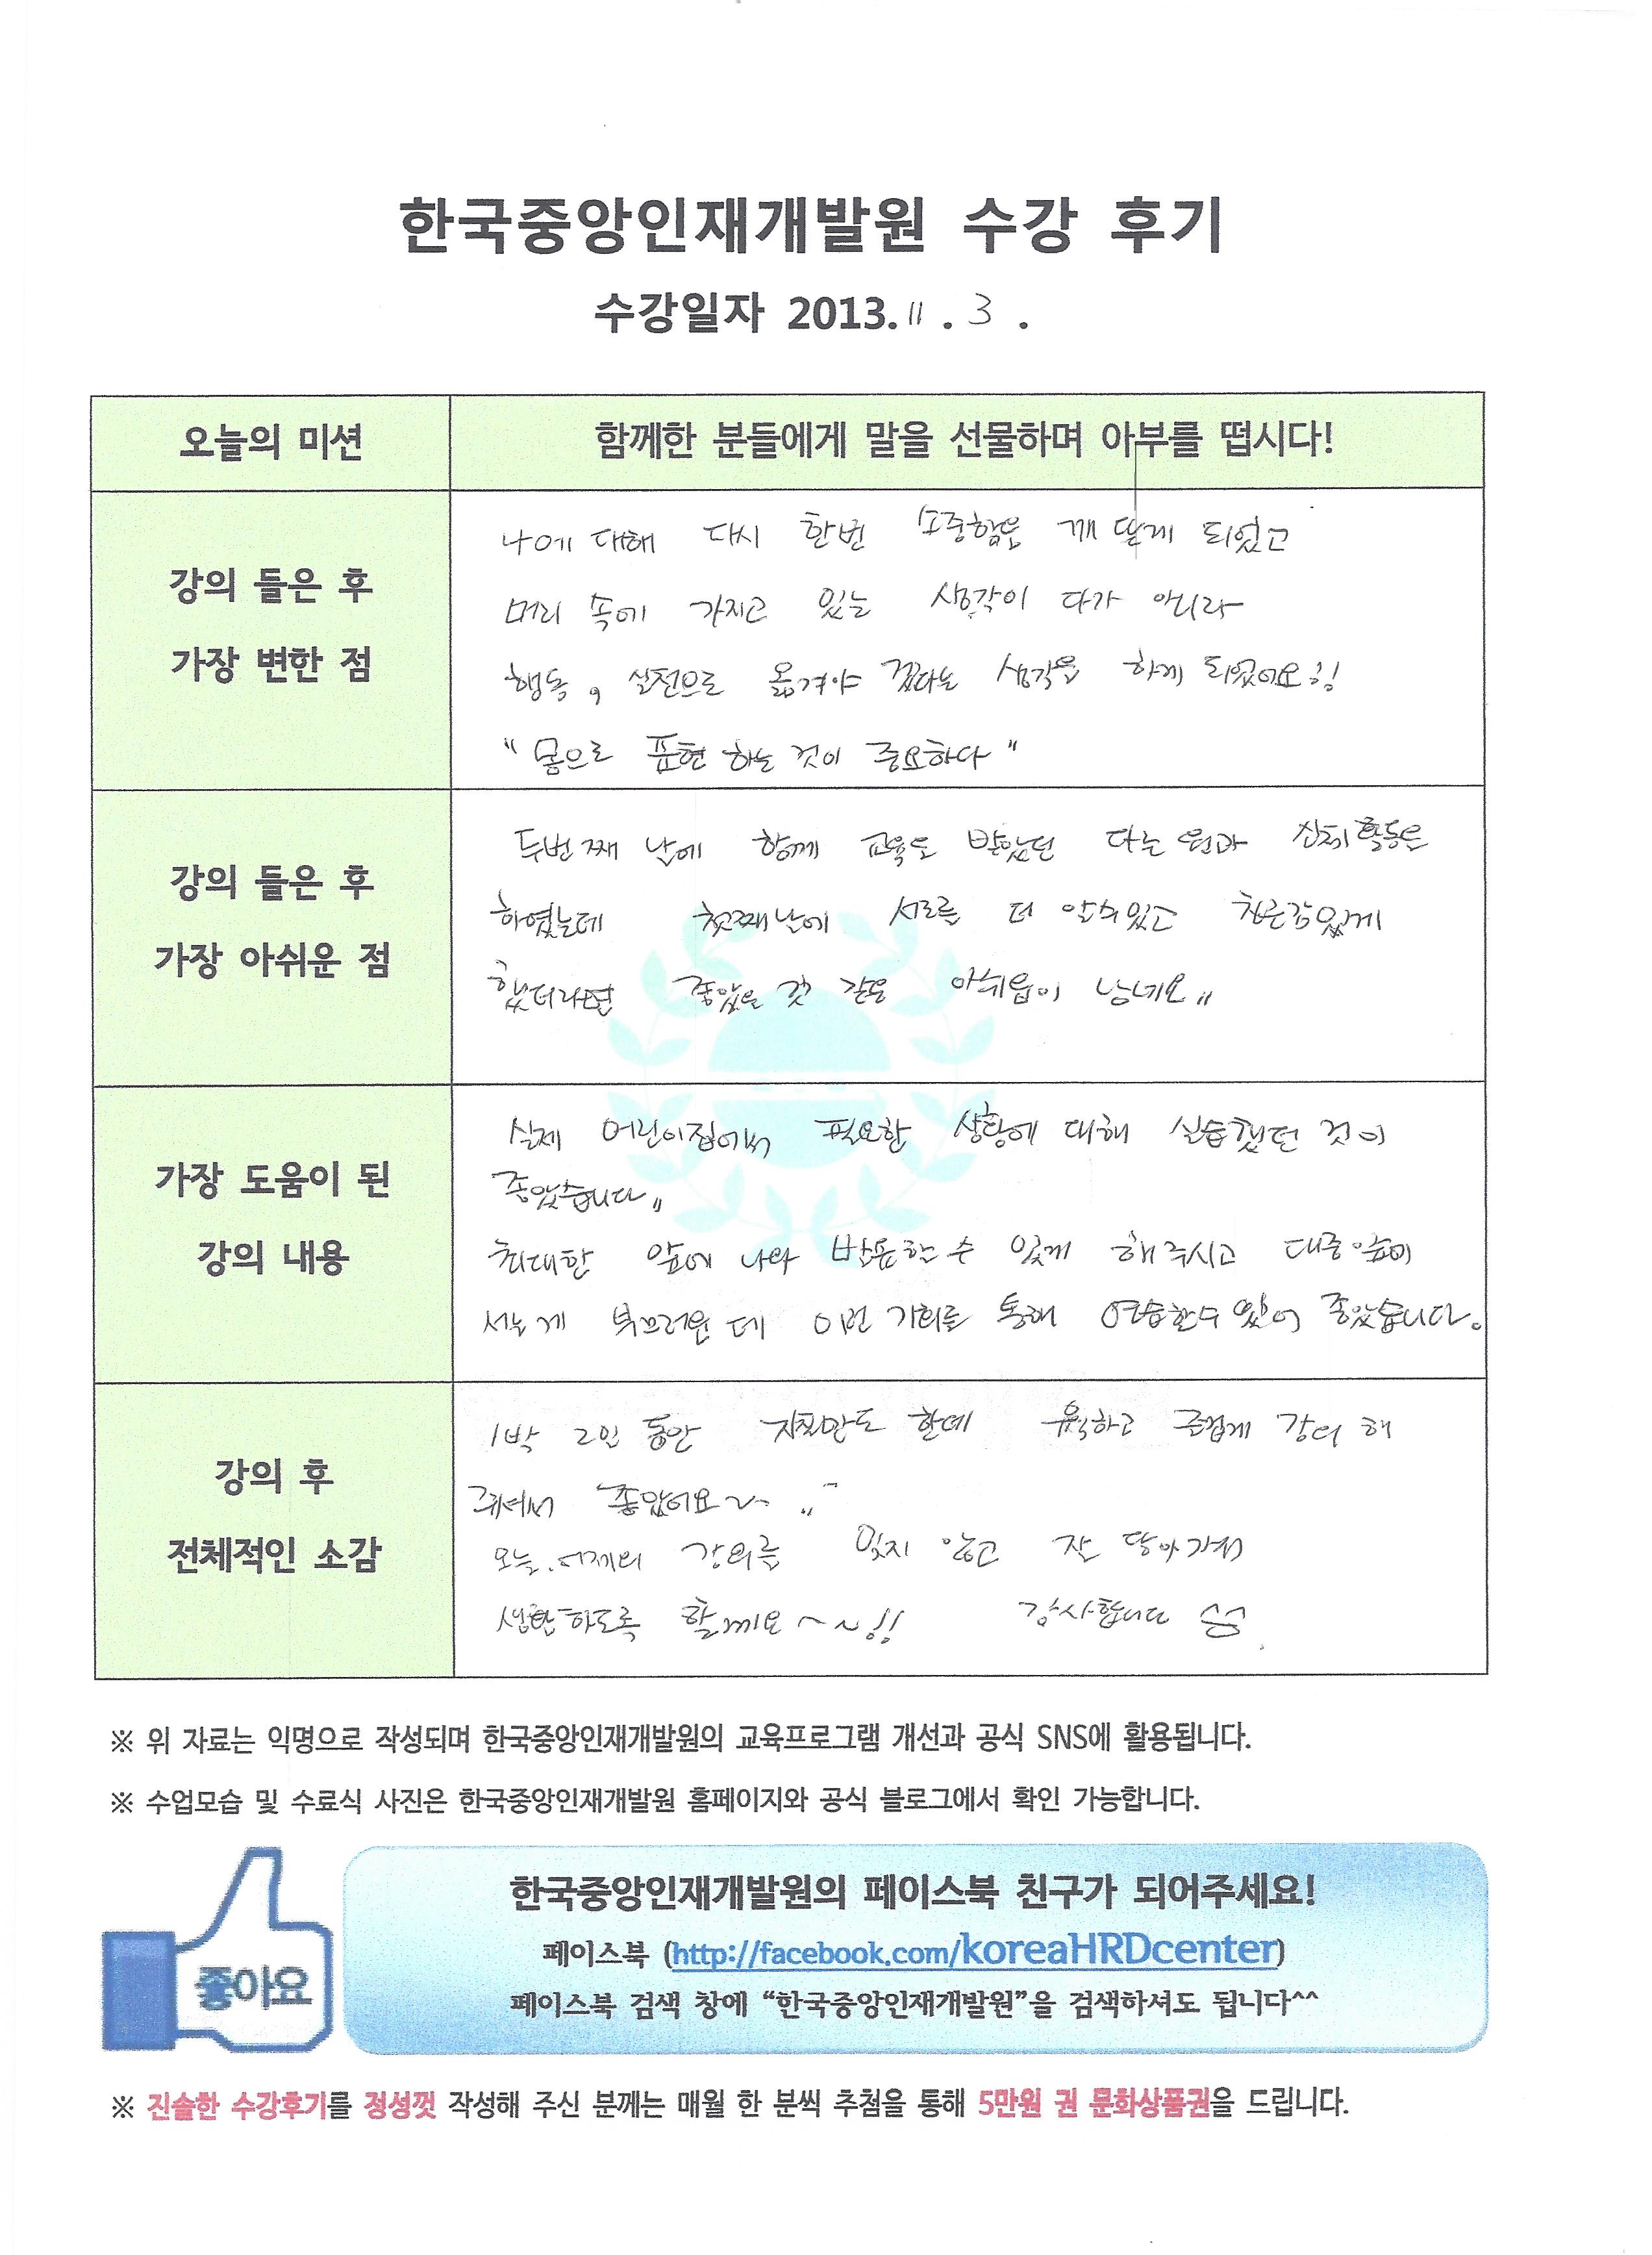 한국중앙인재개발원 수강 후기
수강일자 2013. 11 . 3 .
오늘의 미션
함께한 분들에게 말을 선물하며 아부를 떱시다!
강의 들은 후
가장 변한 점
나에 대해 다시 한번 소중함을 깨 닫게 되었고
머리 속에 가지고 있는 생각이 다가 아니라
행동, 실전으로 옮겨야 겠다는 생각을 하게 되었어요!!
"몸으로 표현 하는 것이 중요하다"
강의 들은 후
가장 아쉬운 점
두번 째 날에 함께 교육도 받았던 다른 원과 신체활동을
하였는데 첫째날에 서로를 더 알수있고 친근감있게
했더라면 좋았을 것 같은 아쉬움이 남네요"
가장 도움이 된
강의 내용
실제 어린이집에서 필요한 상황에 대해 실습했던 것이
좋았습니다"
최대한 앞에 나와 발표할 수 있게 해 주시고 대중 앞에
서는 게 부끄러운 데 이번 기회를 통해 연습할수 있어 좋았습니다.
강의 후
전체적인 소감
1박 2일 동안 지칠만도 한데 유익하고 즐겁게 강의 해
주셔서 좋았어요~
오늘.어제의 강의를 잊지 않고 잘 담아가서
생활하도록 할께요~~!! 감사합니다
※ 위 자료는 익명으로 작성되며 한국중앙인재개발원의 교육프로그램 개선과 공식 SNS에 활용됩니다.
※ 수업모습 및 수료식 사진은 한국중앙인재개발원 홈페이지와 공식 블로그에서 확인 가능합니다.
좋아요
한국중앙인재개발원의 페이스북 친구가 되어주세요!
페이스북 (http://facebook.com/koreaHRDcenter)
페이스북 검색 창에 “한국중앙인재개발원”을 검색하셔도 됩니다^^
※ 진솔한 수강후기를 정성껏 작성해 주신 분께는 매월 한 분씩 추첨을 통해 5만원 권 문화상품권을 드립니다.